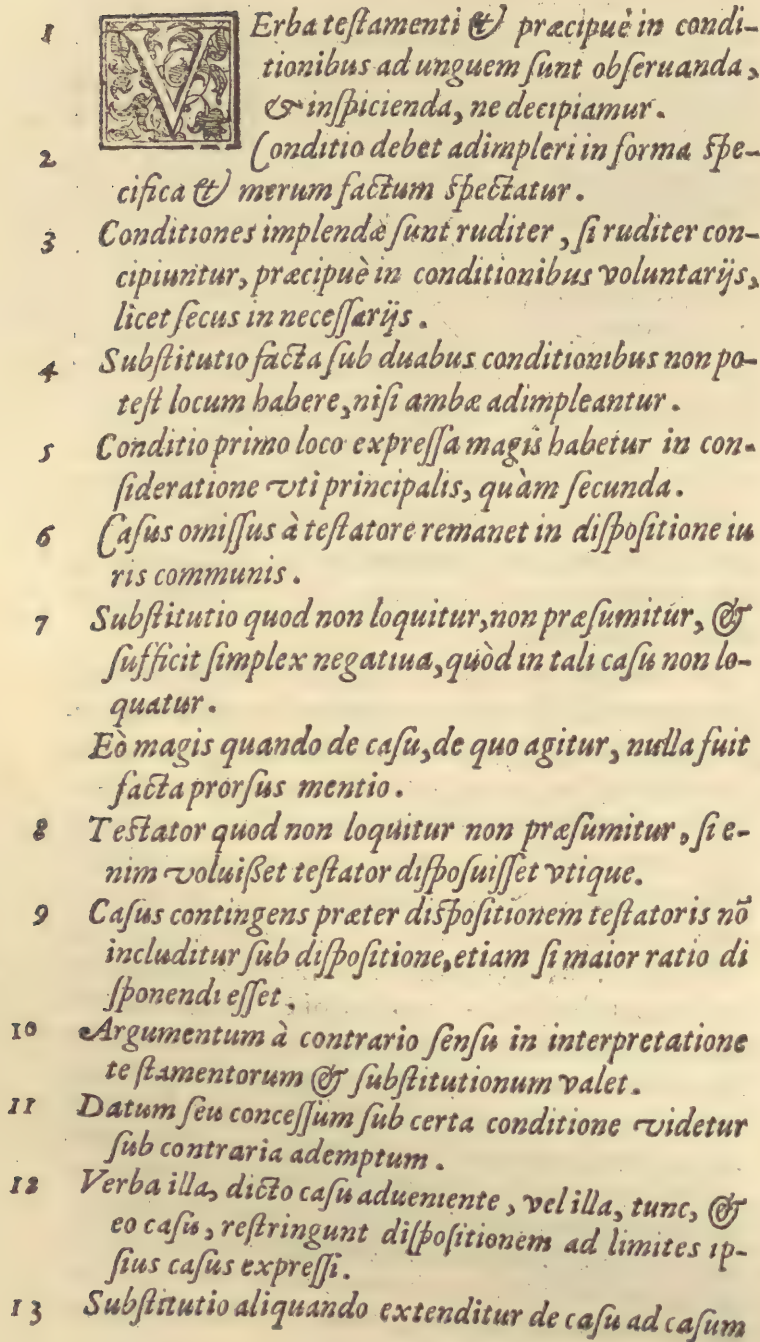 1 VErba teſtamenti & præcipuè in condi-
tionibus ad unguem ſunt obſeruanda,
& inſpicienda, ne decipiamur.
2 Conditio debet adimpleri in forma ſpe-
cifica & merum factum ſpectatur.
3 Conditiones implendæ ſunt ruditer, ſi ruditer con-
cipiuntur, præcipuè in conditionibus voluntarijs,
licet ſecus in neceſſarijs.
4 Subſtitutio facta ſub duabus conditionibus non po-
teſt locum habere, niſi ambæ adimpleantur.
5 Conditio primo loco expreſſa magis habetur in con-
ſideratione vti principalis, quàm ſecunda.
6 Caſus omiſſus à teſtatore remanet in diſpoſitione iu
ris communis.
7 Subſtitutio quod non loquitur, non præſumitur, &
ſufficit ſimplex negatiua, quòd in tali caſu non lo-
quatur.
Eò magis quando de caſu, de quo agitur, nulla fuit
facta prorſus mentio.
8 Teſtator quod non loquitur non præſumitur, ſi e-
nim voluißet teſtator diſpoſuiſſet vtique.
9 Caſus contingens præter diſpoſitionem teſtatoris nõ
includitur ſub diſpoſitione, etiam ſi maior ratio di
ſponendi eſſet.
10 Argumentum à contrario ſenſu in interpretatione
te ſtamentorum & ſubſtitutionum valet.
11 Datum ſeu conceſſum ſub certa conditione videtur
ſub contraria ademptum.
12 Verba illa, dicto caſu adueniente, vel illa, tunc, &
eo caſu, reſtringunt diſpoſitionem ad limites ip-
ſius caſus expreſſi.
13 Subſtitutio aliquando extenditur de caſu ad caſum